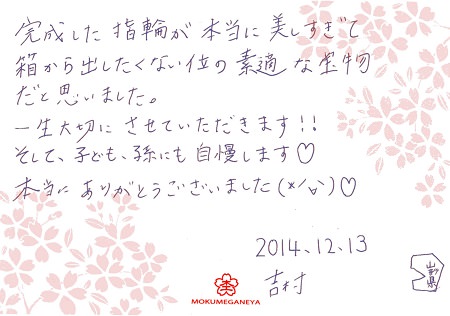 完成した指輪が本当に美しすぎて
箱から出したくない位の素適な宝物
だと思いました。
一生大切にさせていただきます!!
そして、子ども、孫にも自慢します♡
本当にありがとうございました(*^▽^)♡
2014.12.13
吉村
山形県
MOKUMEGANEYA